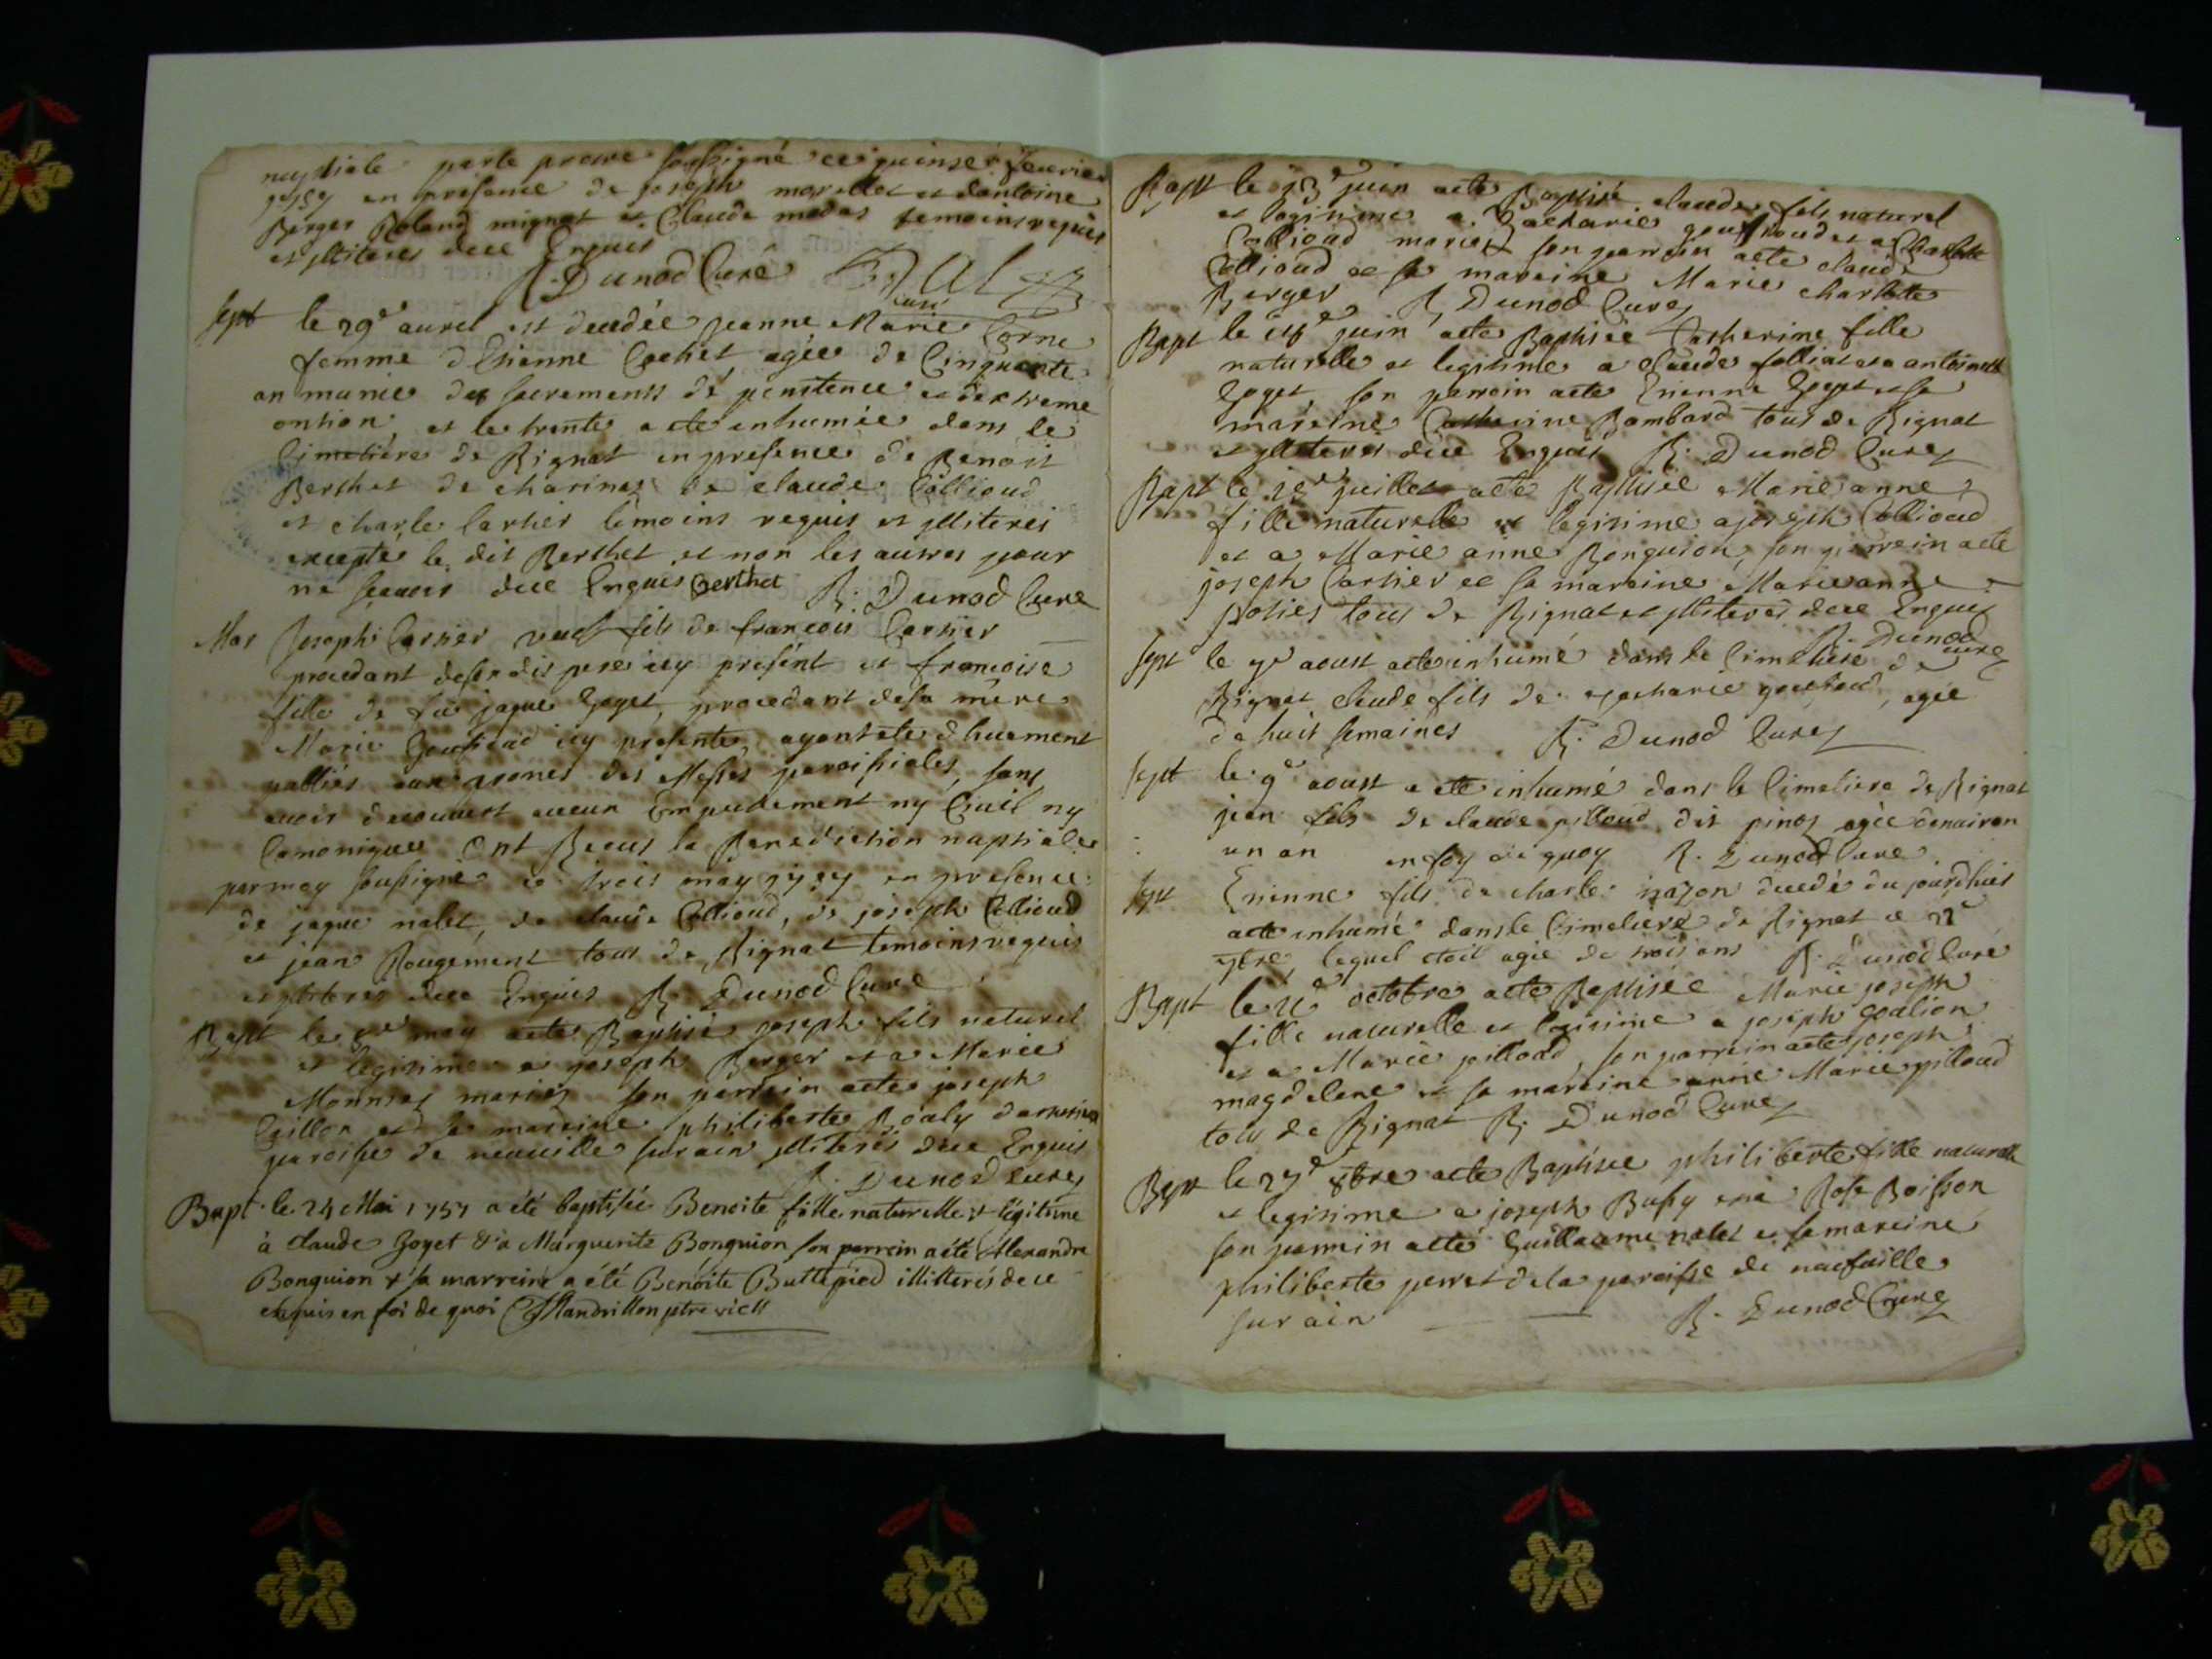 nuptiale par le pretre soussigné ce quinse fevrier
1757 en presence de joseph morellet et dantoine
Berger Roland mignot et Claude modas temoins requis
et illiteres dece Enquis
R. Dunod Curé
curé
Sept le 29e auril est decedée jeanne Marie Corne
femme d'Etienne Cochet agée de Cinquante
an munie des sacrements de penitence et dextreme
ontion, et le trente a ete inhumée dans le
Cimetiére de Rignat en presence de Benoit
Berthet de charinas de claude Collioud
et charle Cartier temoins requis et illiteres
excepté le dit Berthet et non les autres pour
ne scavoir dece Enquis Berthet R. Dunod Cure
Mar Joseph Cartier veuf fils de francois Cartier
procedant de son dit pere icy présent et francoise
fille de feu jaque Goyet, procedant de sa mere
Marie Gouffoud icy presente, ayant ete dhuement
publiés aux prones des Messes paroissiales, sans
avoir decouvert aucun Empechement ny Civil ny
Canonique Ont Recus la Benediction nuptiale
par moy soussigné ce trois may 1757 en presence
de jaque nalet, de claude Collioud, de joseph Collioud
et jean Rougement tous de Rignat temoins requis
et illiteres dece Enquis R. Dunod Cure
Bapt le 8e may a ete Baptisé joseph fils naturel
et legitime a joseph Berger et a Marie
Monnier mariés son parrein a ete joseph
Gillon et sa mareine philiberte Roaly
paroisse de neuville sur ain illiterés dece Enquis
R. Dunod Cure
Bapt. le 24 Mai 1757 a été baptisée Benoite fille naturelle & légitime
à claude Goyet & a Marguerite Bonguion son parrein a été Alexandre
Bonguion & sa marreine a été Benoite Buttepied illitterés de ce
enquis en foi de quoi Mandrillon ptre vic
Bapt le 13e juin a ete Baptisé claude fils naturel
et legitime a Zacharie gouffoud et a Charlotte
Collioud mariés son parrein a ete claude
Collioud et sa mareine Marie charlotte
Berger R. Dunod Cure
Bapt le 14e juin a ete Baptisée Catherine fille
naturelle et legitime a claude folliat et a antoinette
Goyet, son parrein a ete Etienne Goyet et sa
mareine Catherine Bombard tous de Rignat
et illiteres dece Enquis R. Dunod Cure
Bapt le 18e juillet a ete Baptisée Marie anne
fille naturelle et legitime a joseph Collioud
et a Marie anne Bonguion, son parrein a ete
joseph Cartier et sa mareine Marie anne
potier tous de Rignat et illiteres dece Enquis
R. Dunod
cure
Sept le 7e aoust a ete inhumé dans le Cimetiere de
Rignat Claude fils de Zacharie gouffoud, agée
de huit semaines R. Dunod Cure
Sept le 9e aoust a ete inhumé dans le Cimetiere de Rignat
jean fils de claude pilloud dit pinoz agée denuiron
un an en foy de quoy R. Dunod Cure
Sept Etienne fils de charle nazon decedé du jourdhuit
a ete inhumé dans le Cimetiere de Rignat ce
7bre lequel etoit agée de trois ans R. Dunod Curé
Bapt le 11e octobre a ete Baptisée Marie joseph
fille naturelle et legitime a joseph Goalion
et a Marie pilloud, son parrein a ete joseph
magdelene et sa mareine anne Marie pilloud
tous de Rignat R. Dunod Cure
Bapt le 27e 8bre a ete Baptisée philiberte fille naturelle
et legitime a joseph Bussy et a Rose Boisson
son parrein a eté Guillaume nalet et sa mareine
philiberte perret de la paroisse de neufuille
sur ain R. Dunod Cure